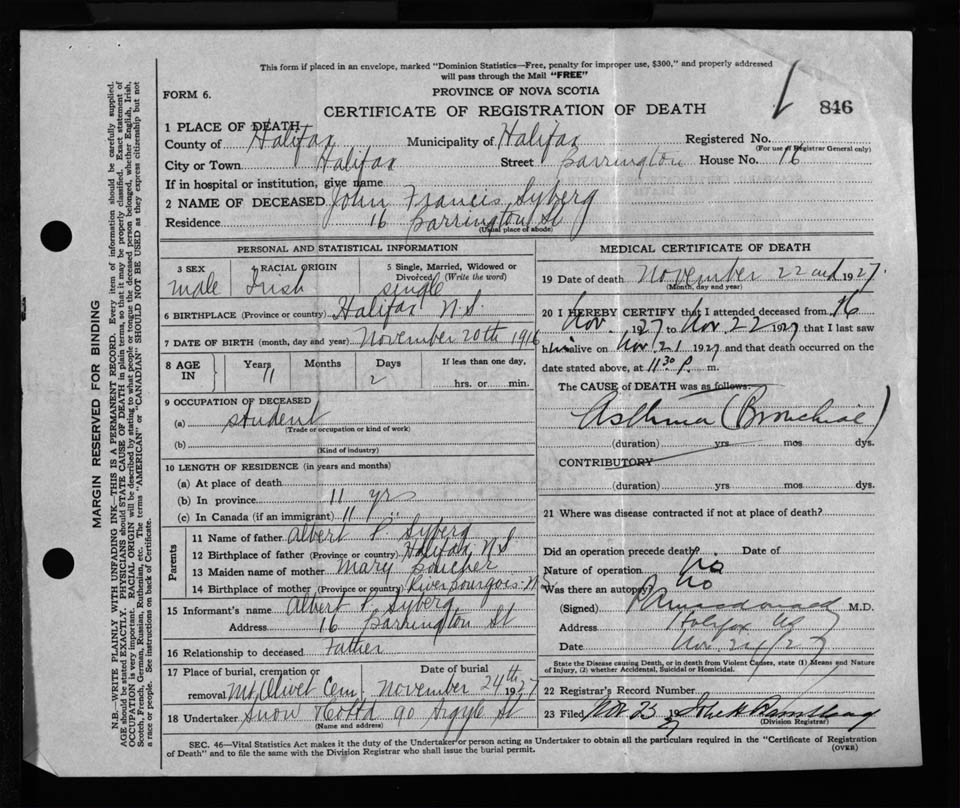 This form if placed in an envelope, marked "Dominion Statistics—Free, penalty for improper use, $300," and properly addressed
will pass through the Mail "FREE"
FORM 6.
PROVINCE OF NOVA SCOTIA
CERTIFICATE OF REGISTRATION OF DEATH
846
1 PLACE OF DEATH
County of Halifax Municipality of Halifax Registered No.
(For use of Registrar General only)
City or Town Halifax Street Barrington House No. 16
If in hospital or institution, give name
2 NAME OF DECEASED John Francis Syberg
Residence 16 Barrington St
(Usual place of abode)
PERSONAL AND STATISTICAL INFORMATION
3 SEX male
4 RACIAL ORIGIN Irish
5 Single, Married, Widowed or Divorced (Write the word) single
6 BIRTHPLACE (Province or country) Halifax N.S.
7 DATE OF BIRTH (month, day and year) November 20th 1916
8 AGE IN Years 11 Months Days 2 If less than one day, hrs. or min.
9 OCCUPATION OF DECEASED
(a) student
(Trade or occupation or kind of work)
(b)
(Kind of industry)
10 LENGTH OF RESIDENCE (in years and months)
(a) At place of death
(b) In province 11 yrs
(c) In Canada (if an immigrant) 11 "
Parents
11 Name of father Albert P. Syberg
12 Birthplace of father (Province or country) Halifax N S
13 Maiden name of mother Mary Boucher
14 Birthplace of mother (Province or country) River Bourgois - N.S.
15 Informant's name Albert P. Syberg
Address 16 Barrington St
16 Relationship to deceased Father
17 Place of burial, cremation or removal Mt. Olivet Cem. Date of burial November 24th 1927
18 Undertaker Snow & Co Ltd 90 Argyle St
(Name and address)
MEDICAL CERTIFICATE OF DEATH
19 Date of death November 22nd 1927
(Month, day and year)
20 I HEREBY CERTIFY that I attended deceased from 16
Nov. 1927 to Nov. 22 1927 that I last saw
him alive on Nov. 21 1927 and that death occurred on the
date stated above, at 11 30 P. m.
The CAUSE of DEATH was as follows:
Asthma (Bronchial)
(duration) yrs. mos. dys.
CONTRIBUTORY
(duration) yrs. mos. dys.
21 Where was disease contracted if not at place of death?
Did an operation precede death? no Date of
Nature of operation
Was there an autopsy? no
(Signed) Macdonald M.D.
Address Halifax NS
Date Nov. 24/27
State the Disease causing Death, or in death from Violent Causes, state (1) Means and Nature
of Injury, (2) whether Accidental, Suicidal or Homicidal.
22 Registrar's Record Number
23 Filed Nov 25 27 John H
(Division Registrar)
SEC. 46—Vital Statistics Act makes it the duty of the Undertaker or person acting as Undertaker to obtain all the particulars required in the "Certificate of Registration
of Death" and to file the same with the Division Registrar who shall issue the burial permit.
(OVER)
MARGIN RESERVED FOR BINDING
N.B.—WRITE PLAINLY WITH UNFADING INK—THIS IS A PERMANENT RECORD. Every item of information should be carefully supplied.
AGE should be stated EXACTLY. PHYSICIANS should STATE CAUSE OF DEATH in plain terms, so that it may be properly classified. Exact statement of
OCCUPATION is very important. RACIAL ORIGIN will be described by stating to what people or tongue the deceased person belonged, whether English, Irish,
Scotch, French, German, Russian, Ruthenian, etc. The terms "AMERICAN" or "CANADIAN" SHOULD NOT BE USED as they express citizenship but not
a race or people. See instructions on back of Certificate.